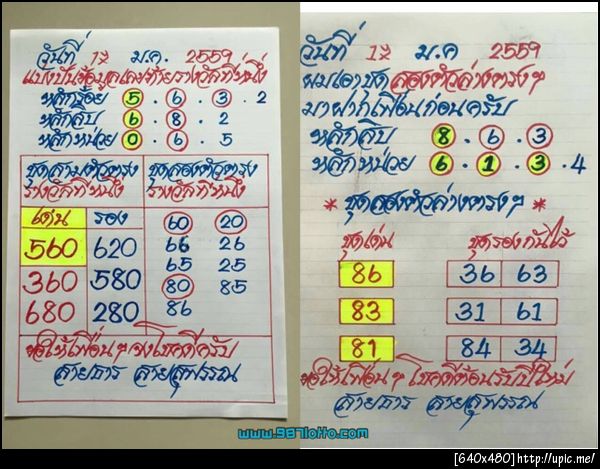 วันที่ 17 ม.ค. 2559
แบ่งปันข้อมูลเลขท้ายรางวัลที่หนึ่ง
หลักร้อย 5 . 6 . 3 . 2
หลักสิบ 6 . 8 . 2
หลักหน่วย 0 . 6 . 5
ชุดสามตัวตรง
รางวัลที่หนึ่ง
เด่น รอง
560 620
360 580
680 280
ชุดสองตัวตรง
รางวัลที่หนึ่ง
60 20
66 26
65 25
80 85
86
ขอให้เพื่อนๆ จงโชคดีครับ
สายธาร สายสุพรรณ
www.987lotto.com
วันที่ 17 ม.ค 2559
ผมเอาชุดสองตัวล่างตรงๆ
มาฝากเพื่อนก่อนครับ
หลักสิบ 8 . 6 . 3
หลักหน่วย 6 . 1 . 3 . 4
* ชุดสองตัวล่างตรงๆ *
ชุดเด่น ชุดรองกันไว้
86 36 63
83 31 61
81 84 34
ขอให้เพื่อนๆ โชคดีต้อนรับปีใหม่
สายธาร สายสุพรรณ
[640x480]http://upic.me/